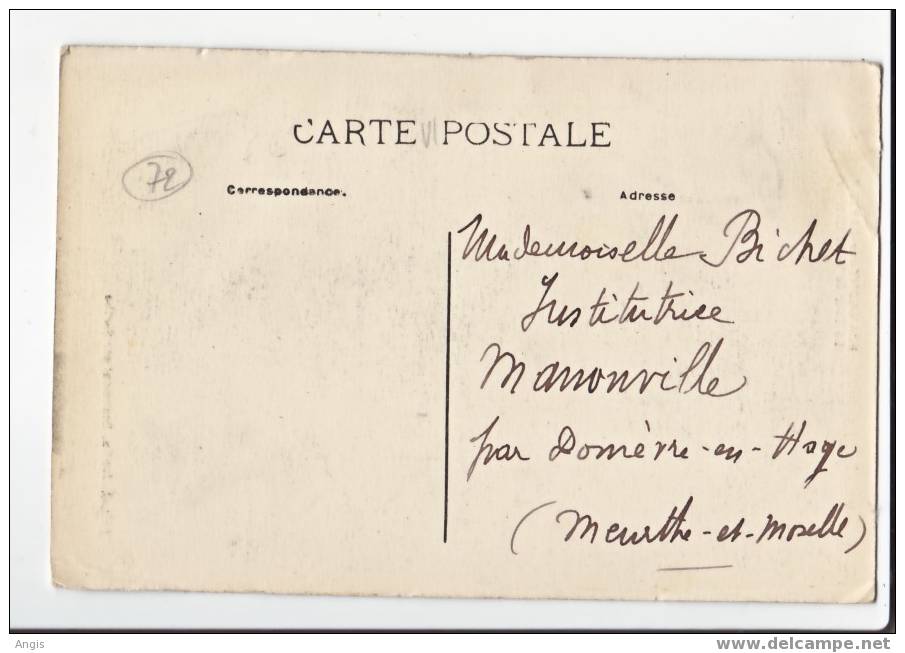 CARTE POSTALE
72
Correspondance.
Adresse
Mademoiselle Bichet
Institutrice
Manonville
par Domèvre-en-Haye
(Meurthe-et-Moselle)
Angis
www.delcampe.net